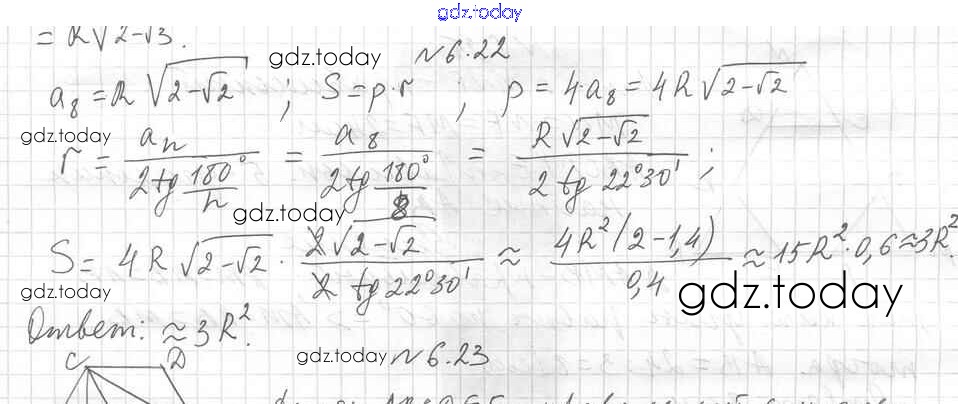 gdz.today
= R√2-√3.
gdz.today №6.22
a₈ = R √2-√2 ; S = p·r ; p = 4·a₈ = 4R√2-√2
gdz.today
r = aₙ / 2tg 180°/n = a₈ / 2tg 180°/8 = R√2-√2 / 2 tg 22°30' ;
gdz.today
S = 4R √2-√2 · 2√2-√2 / 2 tg 22°30' ≈ 4R²(2-1,4) / 0,4 ≈ 15R²·0,6 ≈ 3R².
gdz.today gdz.today
Ответ: ≈ 3R².
gdz.today №6.23
C D